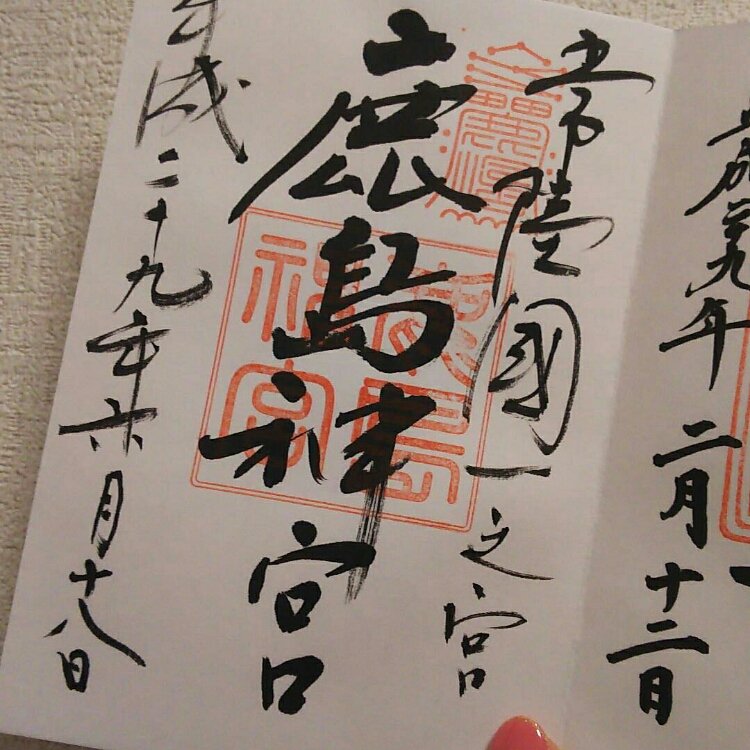 二十九年二月十二日
常陸國一之宮
鹿島神宮
平成二十九年六月十八日
鹿島神宮